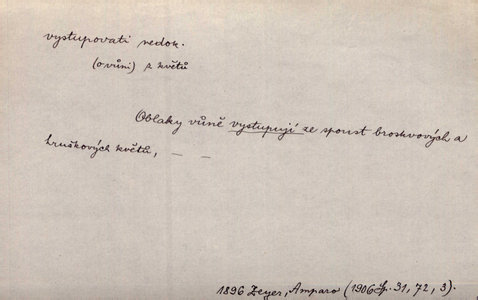 vystupovati nedok.
(o vůni) z květů
Oblaky vůně vystupují ze spoust broskvových a
hruškových květů, — —
1896 Zeyer, Amparo (1906 31, 72, 3).